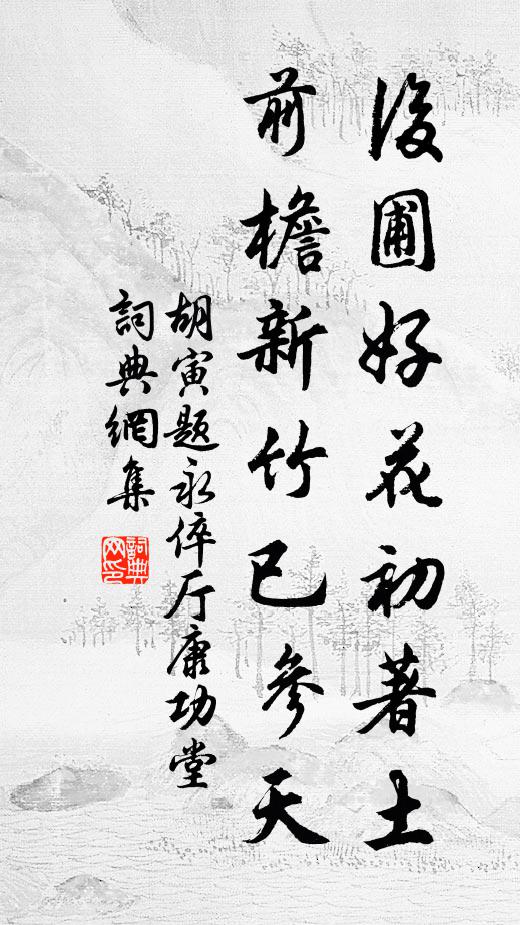 後圃好花初著土
前檐新竹已參天
胡寅題永倅厅康功堂
詞典網集
詞典
网印